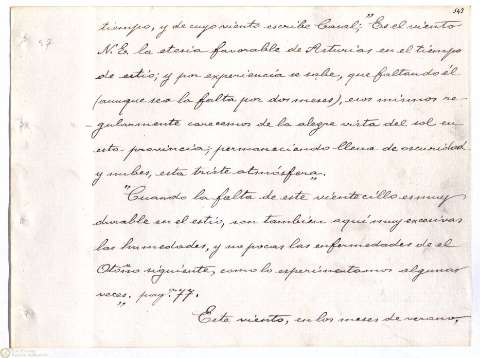 543
tiempo, y de cuyo viento escribe Casal; "Es el viento
N. E. la etesia favorable de Asturias en el tiempo
de estío; y por experiencia se sabe, que faltando él
(aunque sea la falta por dos meses), esos mismos re-
gularmente carecemos de la alegre vista del sol en
esta provincia; permaneciendo llena de oscuridad
y nubes, esta triste atmósfera."
"Cuando la falta de este vientecillo es muy
durable en el estío, son tambien aquí muy excesivas
las humedades, y no pocas las enfermedades de el
Otoño siguiente, como lo experimentamos algunas
veces." pag.ª 77.
Este viento, en los meses de verano,